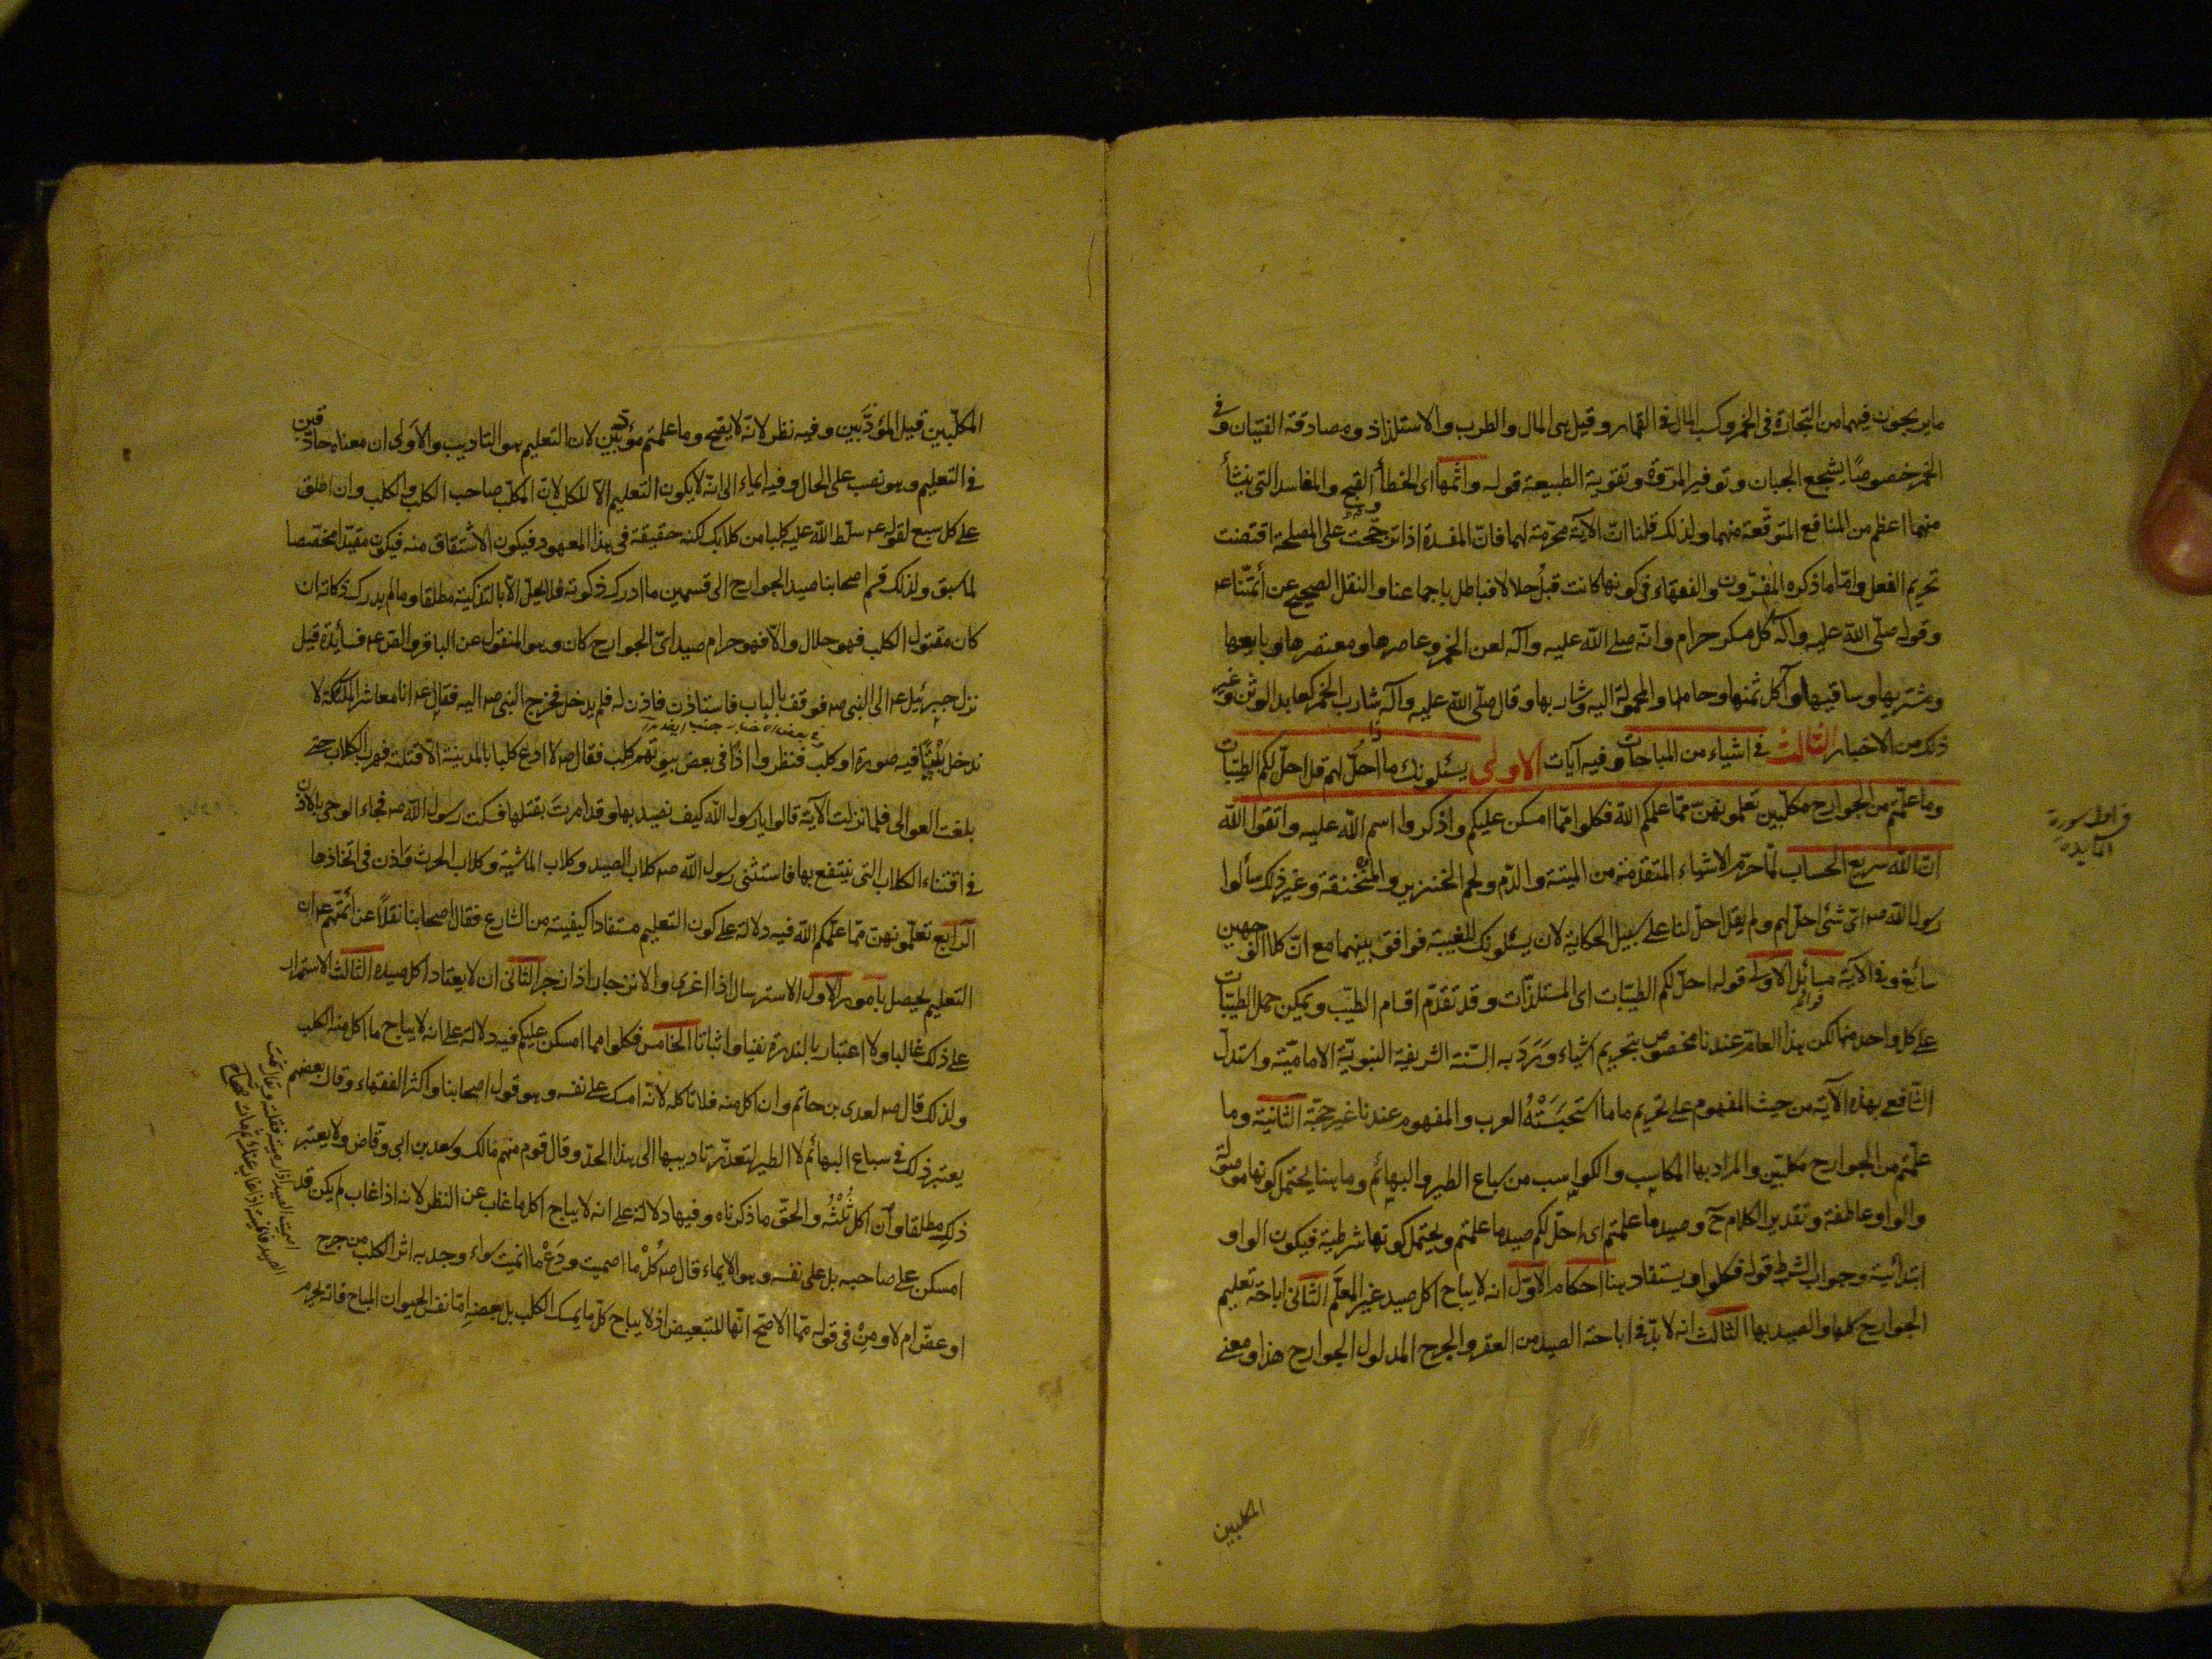 ما يربحون فيهما من التجارة فى الخمر وكسب المال فى القمار وقيل هى المال والطرب والاستلذاذ ومصادقة الفتيان وفى
الخمر خصوصًا يشجع الجبان وتوفير المروة وتقوية الطبيعة قوله واثمهما اى الخطأ القبيح والمفاسد التى ينشأ
منهما اعظم من المنافع المتوقعة منهما ولذلك قلنا انّ الآية محرّمة لهما فانّ المفسدة اذا ترجّحت على المصلحة اقتضت
تحريم الفعل وامّا ما ذكره المفسّرون والفقهاء فى كونها كانت قبلُ حلالا فباطل باجماعنا والنقل الصحيح عن أئمّتنا عم
وقوله صلّى اللّه عليه وآله كل مسكر حرام وانّه صلى اللّه عليه وآله لعن الخمر وعاصرها ومعتصرها وبايعها
ومشتريها وساقيها وآكل ثمنها وحاملها والمحمولة اليه وشاربها وقال صلّى اللّه عليه وآله شارب الخمر كعابد الوثن وغير
ذلك من الاخبار الثالث فى اشياء من المباحات وفيه آيات الاولى يسئلونك ماذا احلّ لهم قل احلّ لكم الطيّبات
وما علّمتم من الجوارح مكلّبين تعلّمونهنّ ممّا علّمكم اللّه فكلوا ممّا امسكن عليكم واذكروا اسم اللّه عليه واتقوا اللّه
انّ اللّه سريع الحساب لمّا حرّم الاشياء المتقدمة من الميتة والدّم ولحم الخنزير والمنخنقة وغير ذلك سألوا
رسول اللّه صم اىّ شئ احلّ لهم ولم يقل احلّ لنا على سبيل الحكاية لان يسئلونك للغيبة فوافق بينهما مع انّ كلا الوجهين
سائغ وفى الآية مسائل الاولى قوله احلّ لكم الطيّبات اى المستلذّات وقد تقدّم اقسام الطيّب ويمكن حمل الطيّبات
على كل واحد منها لكن هذا العام عندنا مخصوص بتحريم اشياء وَرَدَ به السّنة الشريفة النبويّة الاماميّة واستدل
الشافعى بهذه الآية من حيث المفهوم على تحريم ما ما استخبثَتْهُ العرب والمفهوم عندنا غير حجّة الثانية وما
علّمتم من الجوارح مكلّبين والمراد بها المكاسب والكواسب من سباع الطير والبهائم وما هنا يحتمل كونها موصولة
والواو عاطفة وتقدير الكلام ح وصيد ما علّمتم اى احلّ لكم صيد ما علّمتم ويحتمل كونها شرطية فيكون الواو
ابتدائية وجواب الشرط قوله فكلوا ويستفاد هنا احكام الاوّل انه لا يباح اكل صيد غير المعلَّم الثانى اباحة تعليم
الجوارح كلها والصيد بها الثالث انه لا بدّ فى اباحة الصيد من العقر والجرح المدلول الجوارح هذا ومعنى
المكلبين
فى اول سورة
المائدة
المكلّبين قيل المؤدّبين وفيه نظر لانّه لا يقبح وما علّمتم مؤدّبين لان التعليم هو التاديب والاولى ان معناه حاذقين
فى التعليم وهو نصب على الحال وفيه ايماء الى انّه لا يكون التعليم الّا للكلب لانّ المكلّب صاحب الكلب والكلب وان اطلق
على كل سبع لقوله عم سلّط اللّه عليه كلبا من كلابك لكنه حقيقة فى هذا المعهود فيكون الاشتقاق منه فيكون مقيّدا مخصّصا
لما سبق ولذلك قسم اصحابنا صيد الجوارح الى قسمين ما ادرك ذكوته فلا يحلّ الّا بالتذكية مطلقا وما لم يدرك ذكاته ان
كان مقتول الكلب فهو حلال والّا فهو حرام صيد اىّ الجوارح كان وهو المنقول عن الباقر والصّ عم فـأئدة قيل
نزل جبرئيل عم الى النبى صم فوقف بالباب فاستاذن فاذن له فلم يدخل فخرج النبى صم اليه فقال عم انا معاشر الملئكة لا
ندخل بيْتًا فيه صورة او كلب فنظروا اذا فى بعض بيوتهم كلب فقال صم لا ادع كلبا بالمدينة الّا قتلته فهرب الكلاب حتى
بلغت العوالى فلما نزلت الآية قالوا يا رسول اللّه كيف نصيد بها وقد امرتَ بقتلها فسكت رسول اللّه صم فجاء الوحى بالاذن
فى اقتناء الكلاب التى ينتفع بها فاستثنى رسول اللّه صم كلاب الصيد وكلاب الماشية وكلاب الحرث واذن فى اتخاذها
الرابع تعلّمونهنّ ممّا علّمكم اللّه فيه دلالة على كون التعليم مستفادا كيفيته من الشارع فقال اصحابنا نقلًا عن أئمّتهم عم ان
التعليم يحصل بامور الاول الاسترسال اذا اغرى والانزجار اذا زجر الثانى ان لا يعتاد اكل صيده الثالث الاستمرار
على ذلك غالبا ولا اعتبار بالندرة نفيا واثباتا الخامس فكلوا مما امسكن عليكم فيه دلالة على انه لا يباح ما اكل منه الكلب
ولذلك قال صم لعدى بن حاتم وان اكل منه فلا تاكله لانه امسك على نفسه وهو قول اصحابنا واكثر الفقهاء وقال بعضهم
يعتبر ذلك فى سباع البهائم لا الطير لتعذّر تاديبها الى هذا الحدّ وقال قوم منهم مالك وسعد بن ابى وقّاص ولا يعتبر
ذلك مطلقا وان اكل ثُلُثْهُ والحقّ ما ذكرناه وفيها دلالة على انه لا يباح اكل ما غاب عن النظر لانه اذا غاب لم يكن قد
امسكن على صاحبه بل على نفسه وهو الايماء قال صم كُلْ ما اصميت ودَعْ ما انميت سواء وجد به اثر الكلب من جرح
او عقر ام لا ومِنْ فى قوله ممّا الاصحّ انّها للتبعيض اذ لا يباح كلّ ما يمسك الكلب بل بعضهِ امّا نفس الحيوان المباح فانه يحرم